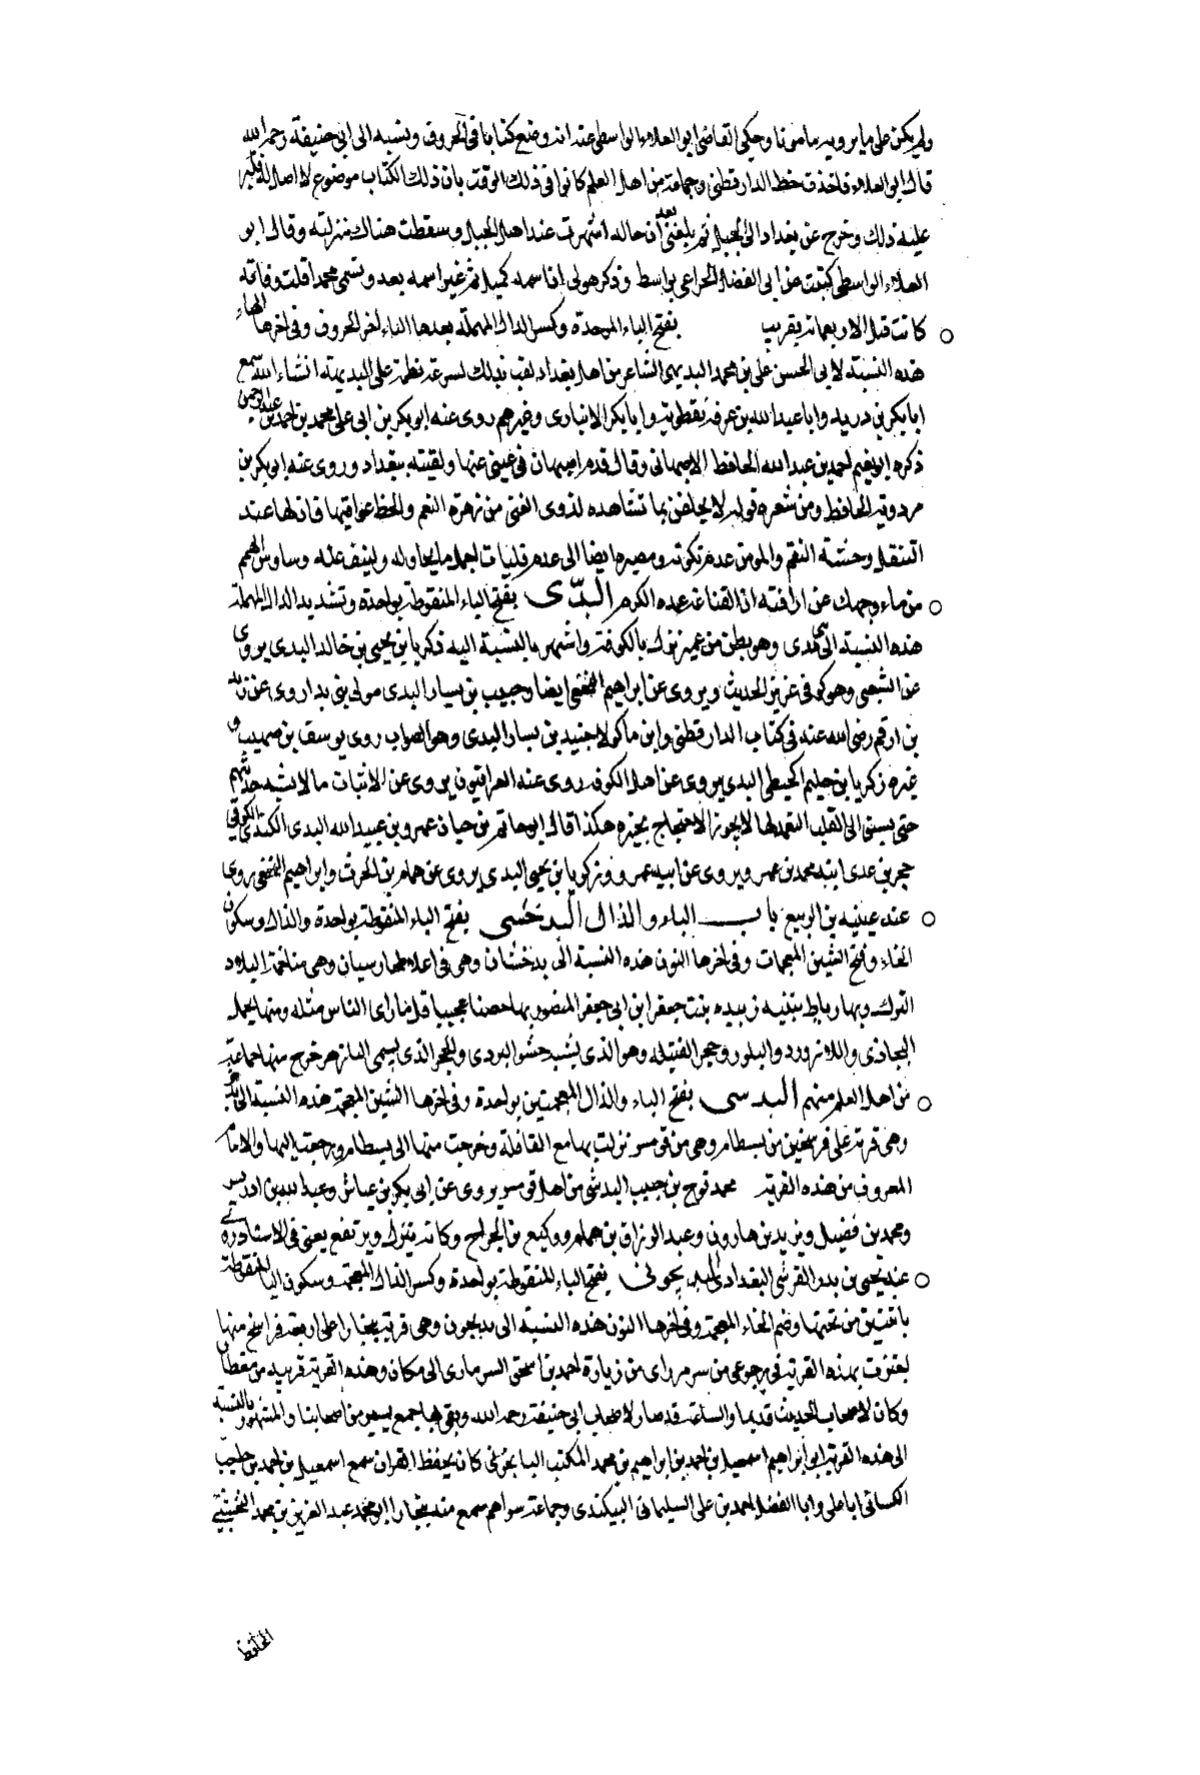 ولم يكن على ما يرويه مامونا وحكى القاضى ابو العلاء الواسطى عنه انه وضع كتابا فى الحروف ونسبه الى ابى حنيفة رحمه الله
قال ابو العلاء فاخذت خط الدارقطنى وجماعة من اهل العلم كانوا فى ذلك الوقت بان ذلك الكتاب موضوع لا اصل له فكبر
عليه ذلك وخرج عن بغداد الى الجبل ثم بلغنى بعد ان حاله اشتهرت عند اهل الجبل وسقطت هناك منزلته وقال ابو
العلاء الواسطى كتبت عن ابى الفضل الخزاعى بواسط وذكر هو لى ان اسمه كميل ثم غير اسمه بعد وتسمى محمدا قلت وفاته
كانت قبل الاربعمائة بقريب بفتح الباء الموحدة وكسر الدال المهملة بعدها الياء اخر الحروف وفى اخرها الهاء
هذه النسبة لابى الحسن على بن محمد البديهى الشاعر من اهل بغداد لقب بذلك لسرعة نظمه على البديهة انشاء الله سمع
ابا بكر بن دريد وابا عبد الله بن عرفة نفطويه وابا بكر الانبارى وغيرهم روى عنه ابو بكر بن ابى على محمد بن احمد بن عبد الرحمن
ذكره ابو نعيم احمد بن عبد الله الحافظ الاصبهانى وقال قدم اصبهان فى غيبتى عنها ولقيته ببغداد وروى عنه ابو بكر بن
مردويه الحافظ ومن شعره قوله لا يخلفن بما تشاهده لذوى الغنى من زهرة النعم والحظ عواقبها فان لها عند
التنقل وحشة النقم والمو من عدم تكونه ومصيره ايضا الى عدم فليات اجمل ما يحاوله ولينف عنه وساوس الهمم
من ماء وجهك عن اراقته ان القناعة عده الكرم البدّى بفتح الباء المنقوطة بواحدة وتشديد الدال المهملة
هذه النسبة الى بدى وهو بطن من حمير نزل بالكوفة واشتهر بالنسبة اليه زكريا بن يحيى بن خالد البدى يروى
عن الشعبى وهو كوفى عزيز الحديث ويروى عن ابراهيم النخعى ايضا وحبيب بن يسار البدى مولى بنى بدا روى عن زيد
بن ارقم رضى الله عنه فى كتاب الدارقطنى وابن ماكولا جنيد بن يسار البدى وهو الصواب روى يوسف بن صهيب و
غيره زكريا بن حليم الحبطى البدى يروى عن اهل الكوفة روى عنه العراقيون يروى عن الاثبات ما لا يشبه حديثهم
حتى يسبق الى القلب التعمد لها لا يجوز الاحتجاج بخبره هكذا قال ابو حاتم بن حبان عمرو بن عبيد الله البدى الكندى الكوفى
حجر بن عدى ابنه محمد بن عمر ويروى عن ابيه عمرو وزكريا بن يحيى البدى يروى عن همام بن الحرث وابراهيم النخعى روى
عنه عيينه بن الربيع باب الباء والذال البدخشى بفتح الباء المنقوطة بواحدة والذال وسكون
الخاء وفتح الشين المعجمات وفى اخرها النون هذه النسبة الى بدخشان وهى فى اعلا طخارستان وهى متاخمة البلاد
الترك وبها رباط بنته زبيده بنت جعفر ابن ابى جعفر المنصور بها حصنا عجيبا قل ما راى الناس مثله ومنها يحمل
البجاذى واللازورد والبلور وحجر الفتيلة وهو الذى يشبه حشو البردى والحجر الذى يسمى البازهر خرج منها جماعة
من اهل العلم منهم البدسى بفتح الباء والذال المعجمتين بواحدة وفى اخرها الشين المعجمة هذه النسبة الى بذش
وهى قرية على فرسخين من بسطام وهى من قومس نزلت بها مع القافلة وخرجت منها الى بسطام ورجعت اليها والامام
المعروف من هذه القرية محمد نوح بن حبيب البدشى من اهل قومس يروى عن ابى بكر بن عياش وعبد الله بن ادريس
ومحمد بن فضيل ويزيد بن هارون وعبد الرزاق بن همام ووكيع بن الجراح وكانه ينزل ويرتفع يعنى فى الاسناد روى
عنه يحيى بن بدر القرشى البغدادى البديخونى بفتح الباء المنقوطة بواحدة وكسر الذال المعجمة وسكون الياء المنقوطة
باثنتين من تحتها وضم الخاء المعجمة وفى اخرها النون هذه النسبة الى بديخون وهى قرية ببخارا على اربعة فراسخ منها
بهذه القرية فى رجوعى من سرمارى من زيارة احمد بن اسحق السرمارى الى مكان وهذه القرية قريبه من
وكان لاصحاب الحديث قديما والساعة قد صار لاصحاب ابى حنيفة رحمه الله وبقى بها جمع يسير من اصحابنا والمشهور بالنسبة
الى هذه القرية ابو ابراهيم اسمعيل بن احمد بن ابراهيم بن محمد المكتب البايخونى كان يحفظ القران سمع اسمعيل بن احمد بن حاجب
الكسائى ابا على وابا الفضل احمد بن على السليمانى البيكندى وجماعة سواهم سمع منه ببخارا ابو محمد عبد العزيز بن محمد النخشبى
الحافظ